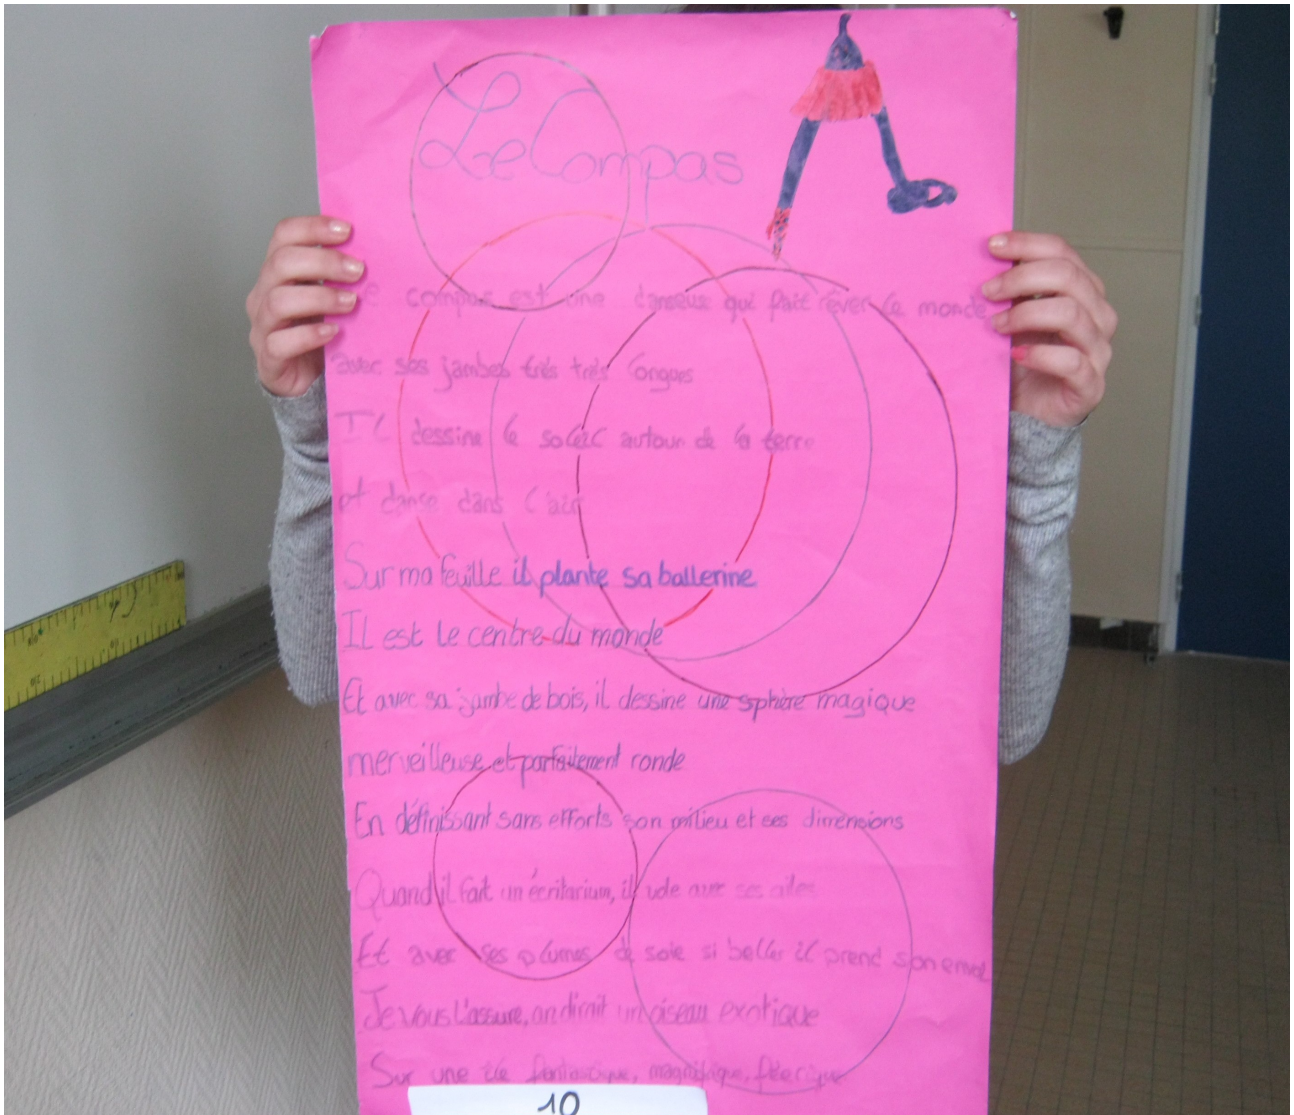 Le Compas
Le compas est une danseuse qui fait rêver le monde
avec ses jambes très très longues
Il dessine le soleil autour de la terre
et danse dans l'air
Sur ma feuille il plante sa ballerine
Il est le centre du monde
Et avec sa jambe de bois, il dessine une sphère magique
merveilleuse et parfaitement ronde
En définissant sans efforts son milieu et ses dimensions
Quand il fait un écritarium, il vole avec ses ailes
Et avec ses plumes de soie si belles il prend son envol
Je vous l'assure, on dirait un oiseau exotique
Sur une île fantastique, magnifique, féerique
10